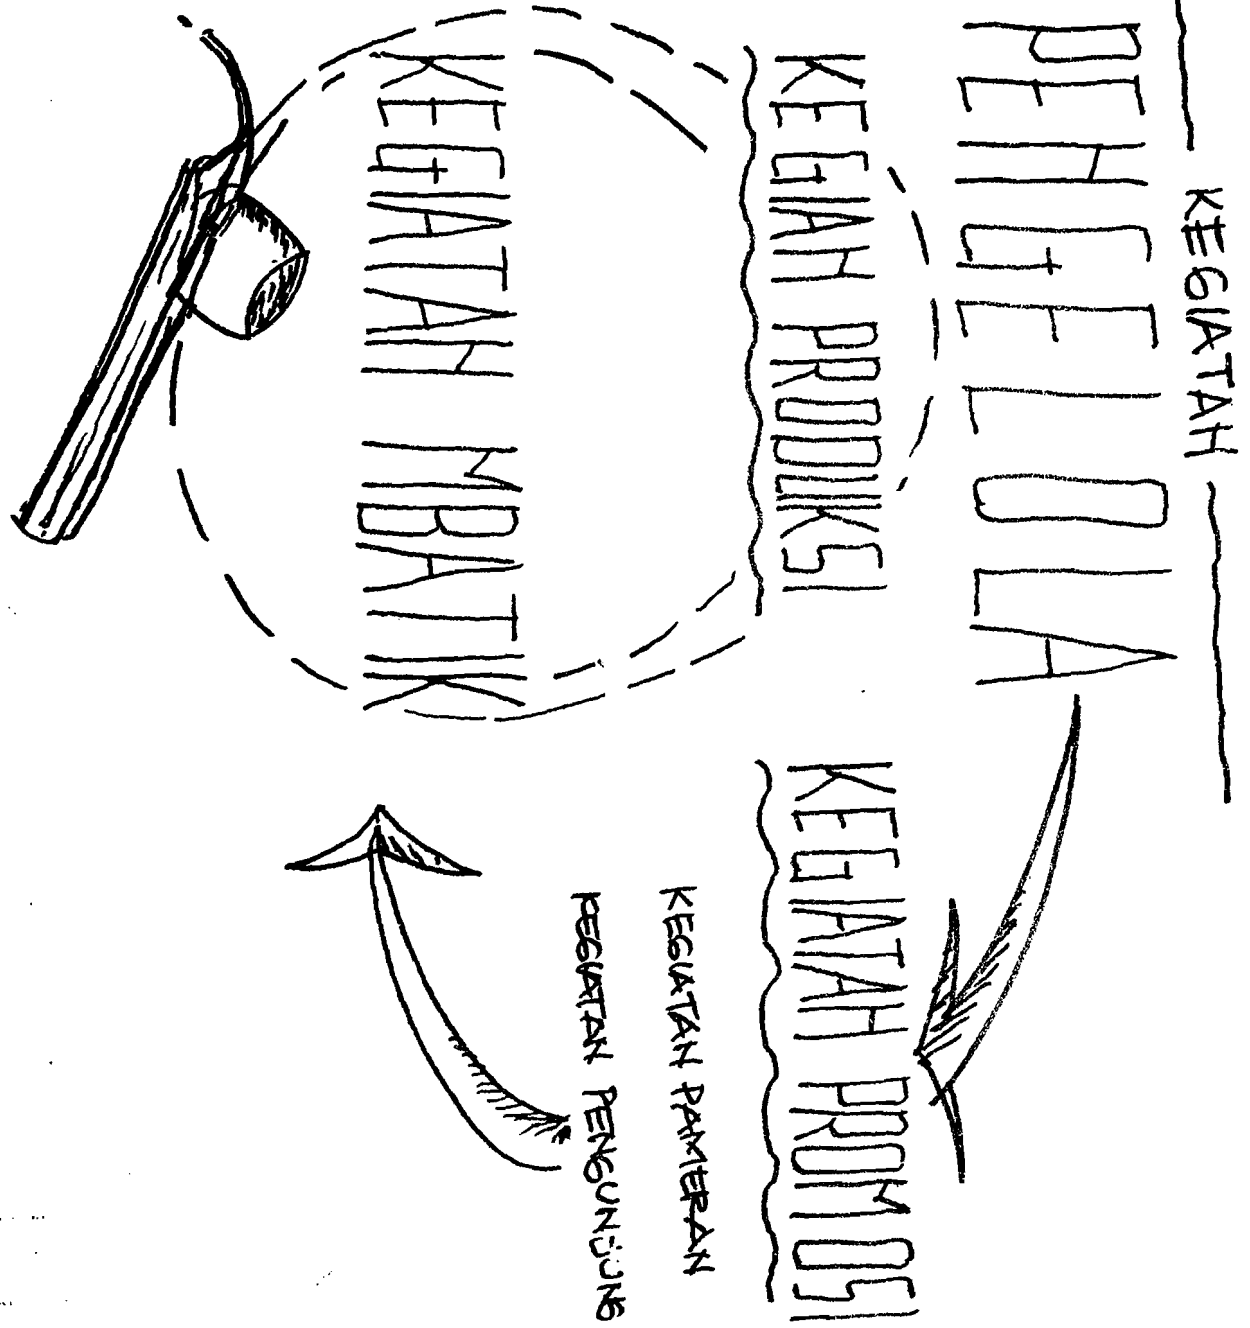 KEGIATAN
PENGELOLA
KEGIAN PRODUKSI
KEGIATAN MBATIK
KEGIATAN PROMOSI
KEGIATAN PAMERAN
KEGIATAN PENGUNJUNG